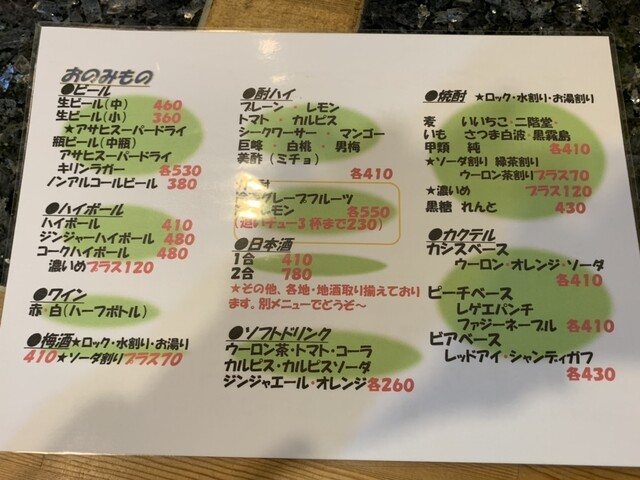 おのみもの
●ビール
生ビール(中) 460
生ビール(小) 360
★アサヒスーパードライ
瓶ビール(中瓶)
アサヒスーパードライ
キリンラガー 各530
ノンアルコールビール 380
●ハイボール
ハイボール 410
ジンジャーハイボール 480
コークハイボール 480
濃いめプラス120
●ワイン
赤・白(ハーフボトル)
●梅酒★ロック・水割り・お湯り
410★ソーダ割りプラス70
●酎ハイ
プレーン・レモン
トマト・カルピス
シークワーサー・マンゴー
巨峰・白桃・男梅
美酢(ミチョ)
各410
グレープフルーツ
レモン 各550
(追いチュー3杯まで230)
●日本酒
1合 410
2合 780
★その他、各地・地酒取り揃えており
ます。別メニューでどうぞ～
●ソフトドリンク
ウーロン茶・トマト・コーラ
カルピス・カルピスソーダ
ジンジャエール・オレンジ各260
●焼酎 ★ロック・水割り・お湯割り
麦 いいちこ・二階堂・
いも さつま白波・黒霧島
甲類 純 各410
★ソーダ割り 緑茶割り
ウーロン茶割りプラス70
★濃いめ プラス120
黒糖 れんと 430
●カクテル
カシスベース
ウーロン・オレンジ・ソーダ
各410
ピーチベース
レゲエパンチ
ファジーネーブル 各410
ビアベース
レッドアイ・シャンディガフ
各430